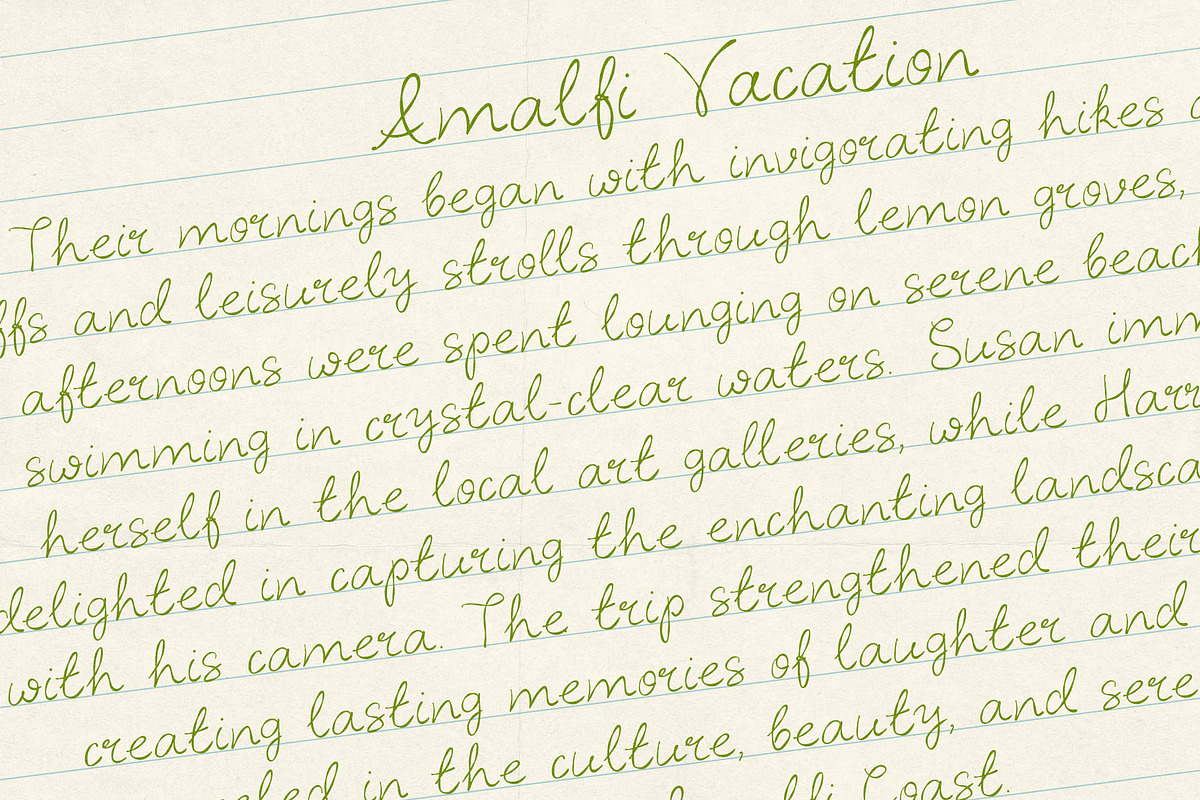 Amalfi Vacation
Their mornings began with invigorating hikes
and leisurely strolls through lemon groves,
afternoons were spent lounging on serene
swimming in crystal-clear waters. Susan
herself in the local art galleries, while
delighted in capturing the enchanting
with his camera. The trip strengthened their
creating lasting memories of laughter and
in the culture, beauty, and
Coast.